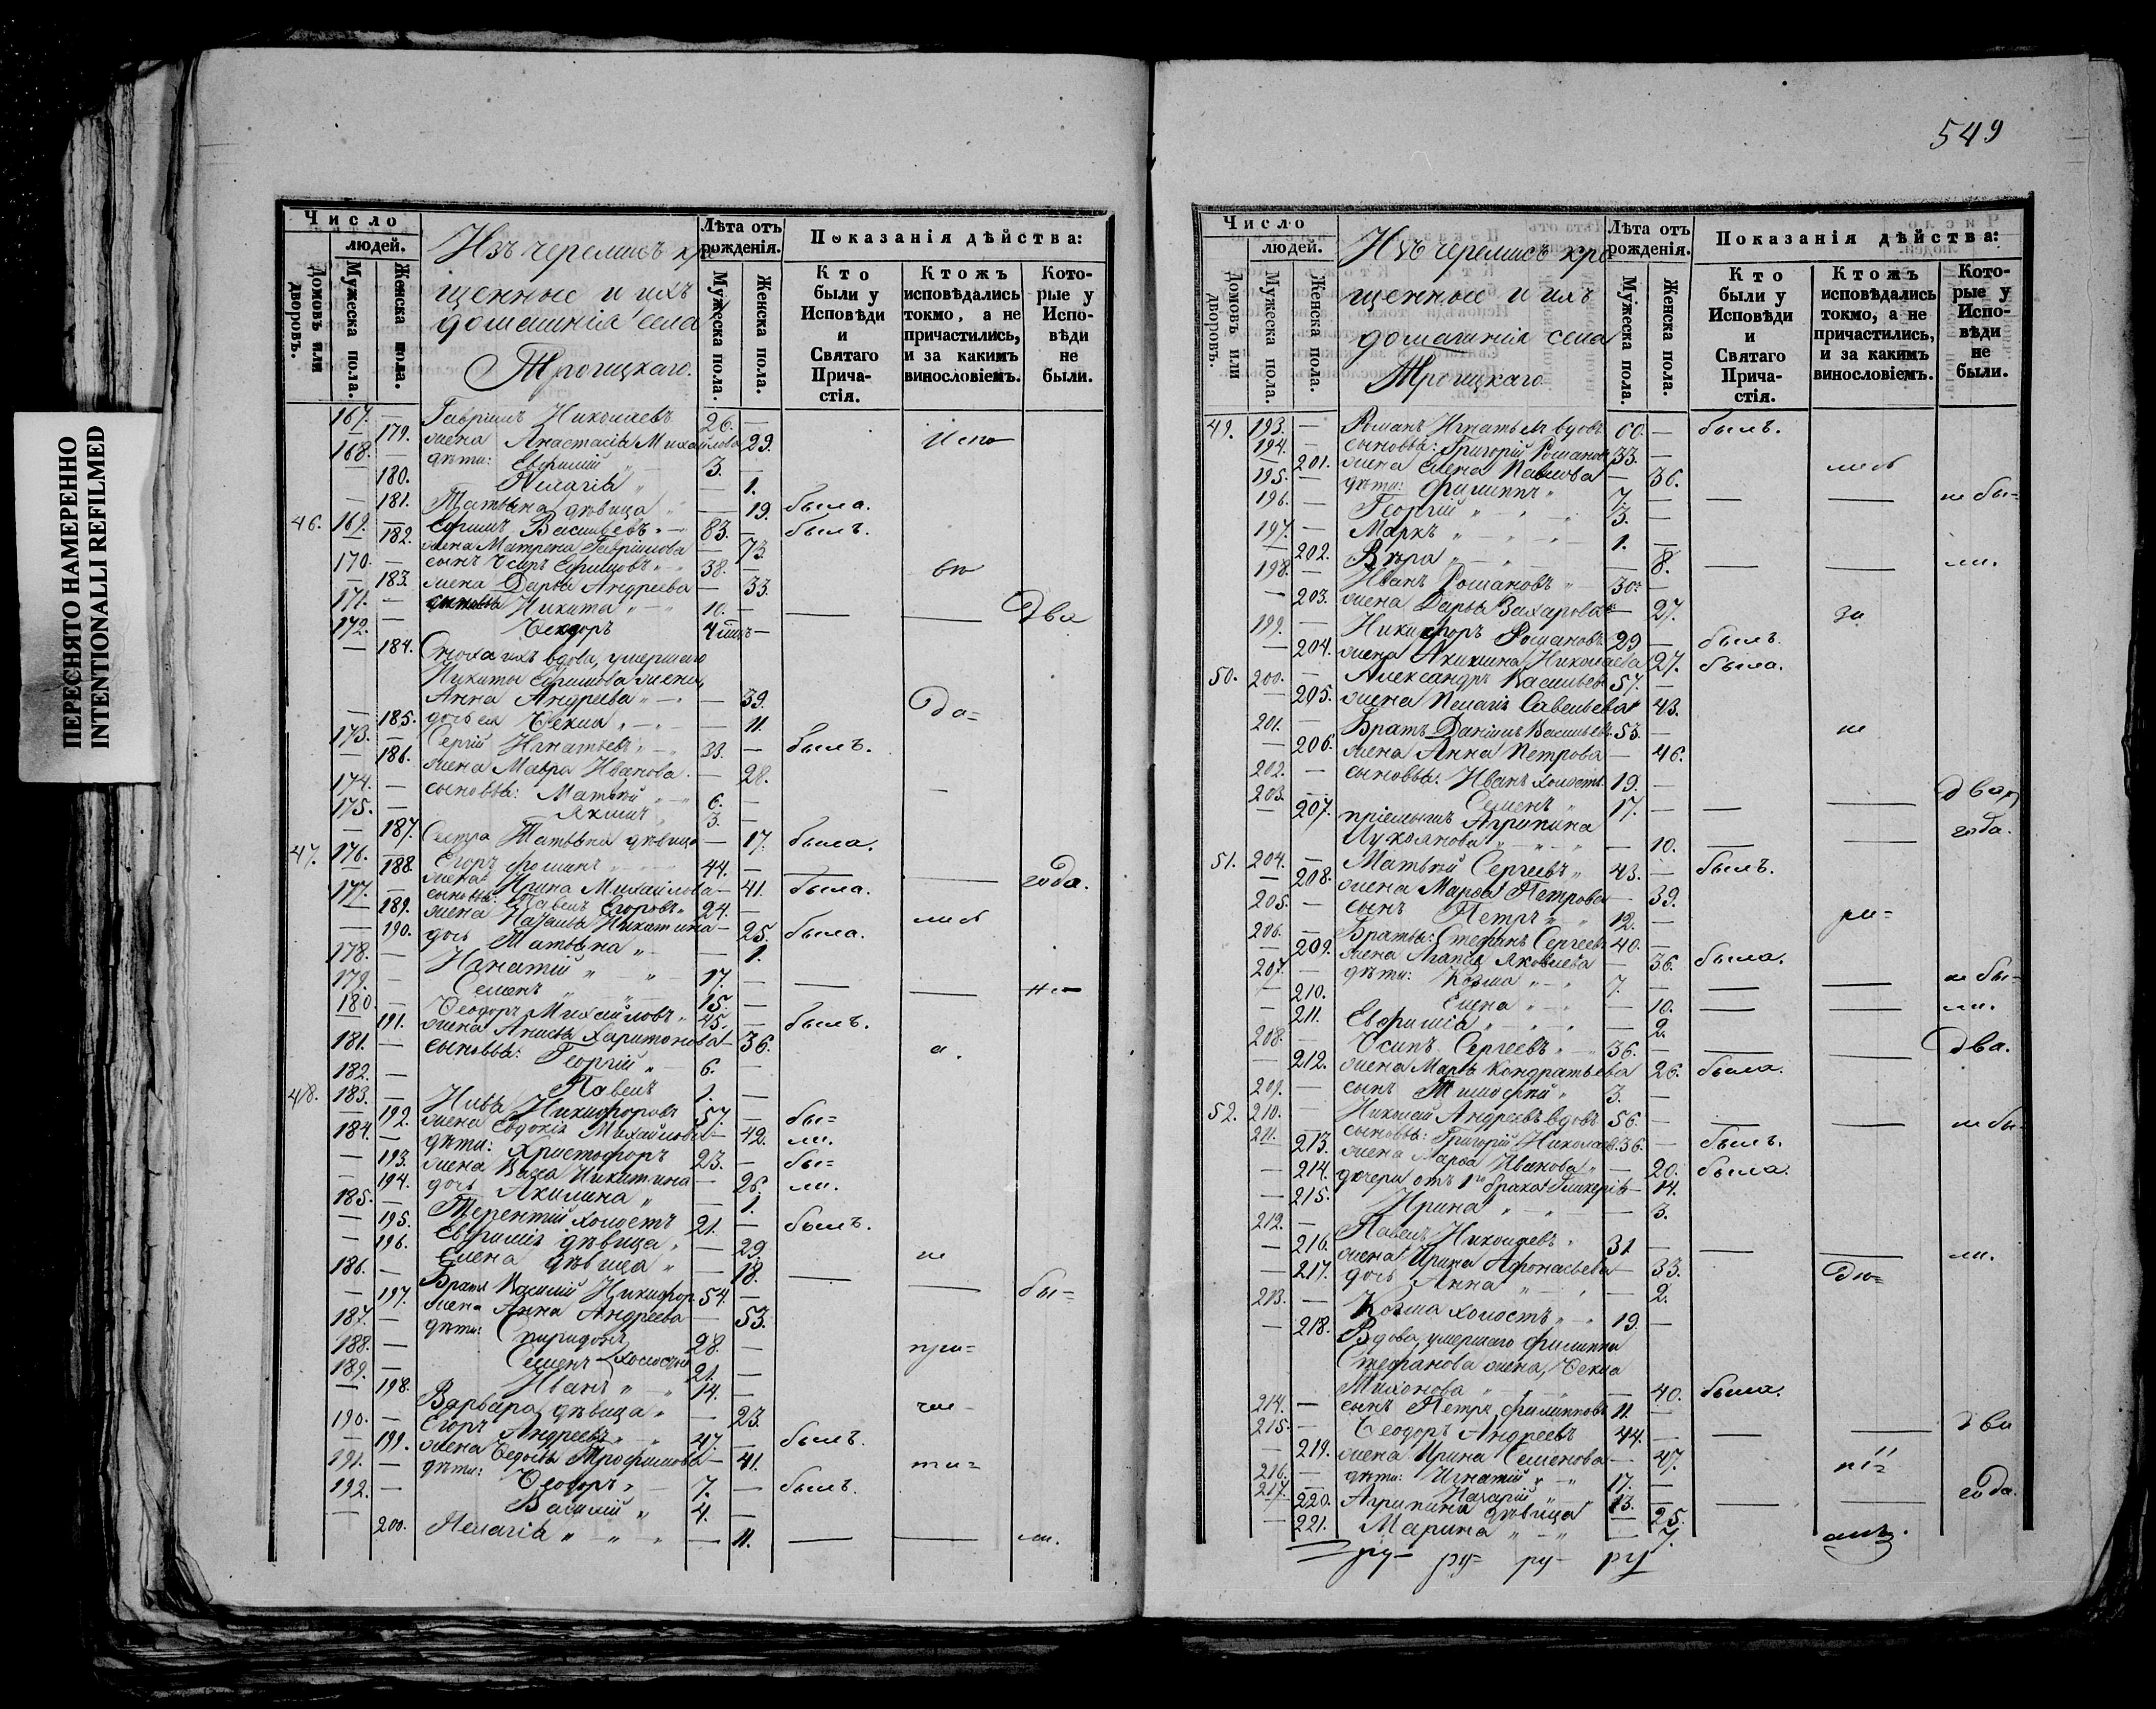 ПЕРЕСНЯТО НАМЕРЕННО
INTENTIONALLI REFILMED
549
Число
людей.
Домовъ или дворовъ.
Мужеска пола.
Женска пола.
Изъ черемисъ кре
щенные и ихъ
домашнія села
Троицкаго.
Лѣта отъ рожденія.
Мужеска пола.
Женска пола.
Показанія дѣйства:
Кто были у Исповѣди и Святаго Причастія.
Ктожъ исповѣдались токмо, а не причастились, и за какимъ винословіемъ.
Которые у Исповѣди не были.
167. — Гавріилъ Николаевъ 26. —
— 179. жена Анастасія Михайлова 29. Испо
168. — дѣти: Евфимій 3. —
— 180. Пелагія — 1.
— 181. Татьяна дѣвица — 19. была.
46. 169. — Ефимъ Васильевъ 83. — былъ.
— 182. жена Матрена Гавріилова — 73.
170. — сынъ Ѳсипъ Ефимовъ 38. —
— 183. жена Дарья Андреева — 33. вѣ
171. — Никита 10. — — — Два
172. — Ѳеодоръ 4 —
— 184. Сноха ихъ вдова, умершаго
Никиты Ефимова жена,
Анна Андреева — 39. Да=
— 185. дочь ея Ѳекла — 11.
173. — Сергій Игнатьевъ 33. — былъ.
— 186. жена Мавра Иванова — 28.
174. — сыновья: Матвѣй 6. —
175. — Якимъ 3. —
— 187. Сестра Татьяна дѣвица — 17. была.
47. 176. — Егоръ Фоминъ 44. — — — года.
— 188. жена Ирина Михайлова — 41. была.
177. — сыновья: Павелъ Егоровъ 24. —
— 189. жена Наталья Никитина — 25. была. лись
— 190. дочь Татьяна — 1.
178. — Игнатій 17. —
179. — Семенъ 15. — — — не
180. — Ѳеодоръ Михайловъ 45. — былъ.
— 191. жена Анисья Харитонова — 36.
181. — сыновья: Георгій 6. — а.
182. — Павелъ 1. —
48. 183. — Илья Никифоровъ 57. — бы=
— 192. жена Евдокія Михайлова — 42. ли.
184. — дѣти: Христофоръ 23. — бы=
— 193. жена Васса Никитина — 26. ли.
— 194. дочь Акилина — 1.
185. — Терентій холостъ 21. — былъ.
— 195. Евфимія дѣвица — 29.
— 196. Елена дѣвица — 18. не
186. — Братъ Василій Никифор. 54. — — — бы=
— 197. жена Анна Андреева — 53.
187. — дѣти: Спиридонъ 28. —
188. — Семенъ холосты 21. — при=
189. — Иванъ 14. —
— 198. Варвара дѣвица — 23. ча
190. — Егоръ Андреевъ 47. — былъ.
— 199. жена Ѳедосья Трофимова — 41.
191. — дѣти: Ѳеодоръ 7. — былъ. сти=
192. — Василій 4. —
— 200. Пелагія — 11. — — ли.
Число
людей.
Домовъ или дворовъ.
Мужеска пола.
Женска пола.
Изъ черемисъ кре
щенные и ихъ
домашнія села
Троицкаго.
Лѣта отъ рожденія.
Мужеска пола.
Женска пола.
Показанія дѣйства:
Кто были у Исповѣди и Святаго Причастія.
Ктожъ исповѣдались токмо, а не причастились, и за какимъ винословіемъ.
Которые у Исповѣди не были.
49. 193. — Романъ Игнатьевъ вдовъ 60. — былъ.
194. — сыновья: Григорій Романовъ 33. —
— 201. жена Елена Павлова — 36. лись
195. — дѣти: Филиппъ 7. — — — не бы=
196. — Георгій 3. —
197. — Маркъ 1. —
— 202. Вѣра — 8. — — ли.
198. — Иванъ Романовъ 30. —
— 203. жена Дарья Захарова — 27. за
199. — Никифоръ Романовъ 29 — былъ.
— 204. жена Акилина Николаева 27. была.
50. 200. — Александръ Васильевъ 57. —
— 205. жена Пелагія Савельева 43.
201. — Братъ Даніилъ Васильевъ 53. — не
— 206. жена Анна Петрова — 46.
202. — сыновья: Иванъ холостъ 19. —
203. — Семенъ 17. — — — Два
— 207. пріемышъ Агрипина
Лукоянова — 10. — — года.
51. 204. — Матвѣй Сергеевъ 43. — былъ.
— 208. жена Марѳа Петрова — 39.
205. — сынъ Петръ 12. — ра=
206. — Братья: Стефанъ Сергеевъ 40. —
— 209. жена Агапія Яковлева — 36. была.
207. — дѣти: Козма 7. — — — не бы=
— 210. Елена — 10. — — ли.
— 211. Евфимія — 2.
208. — Ѳсипъ Сергеевъ 36. — — — Два.
— 212. жена Марья Кондратьева 26. была.
209. — сынъ Тимоѳей 3. —
52. 210. — Николай Андреевъ вдовъ 56. — — — не бы
211. — сыновья: Григорій Николаев. 36. — былъ.
— 213. жена Марья Иванова — 20. была.
— 214. дочери отъ 1го брака: Гликерія — 14.
— 215. Ирина — 3.
212. — Павелъ Николаевъ 31 — — — ли.
— 216. жена Ирина Афонасьева — 33.
— 217. дочь Анна — 2.
213. — Козма холостъ 19. —
— 218. Вдова, умершаго Филиппа
Стефанова жена, Ѳекла
— 40. была.
214. — сынъ Петръ Филипповъ 11. —
215. — Ѳеодоръ Андреевъ 44. — — — два
— 219. жена Ирина Семенова — 47.
216. — дѣти: Игнатій 17. —
217. — Назарій 13. — — — года.
— 220. Агрипина дѣвица — 25.
— 221. Марина — 7.
ру= ру= ру= ру